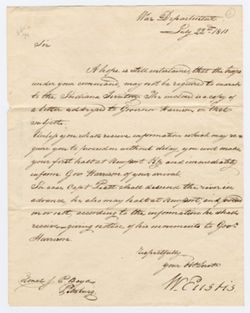 War Department
July 22d 1811
Sir
A hope is still entertained that the troops
under your command, may not be required to march
to the Indiana Territory. The inclosed is a copy of
a letter addressed to Governor Harrison on that
subject.
Unless you shall receive information which may re-
quire you to proceed without delay, you will make
your first halt at Newport Ky. and immediately
inform Gov. Harrison of your arrival.
In case Capt Piatt shall descend the river in
advance he also may halt at Newport, and
or not, according to the information he shall
receive - giving notice of his movements to Govr.
Harrison.
Respectfully
your Obt Servt
W. Eustis
Colonel J. P. Boyd
Pittsburg